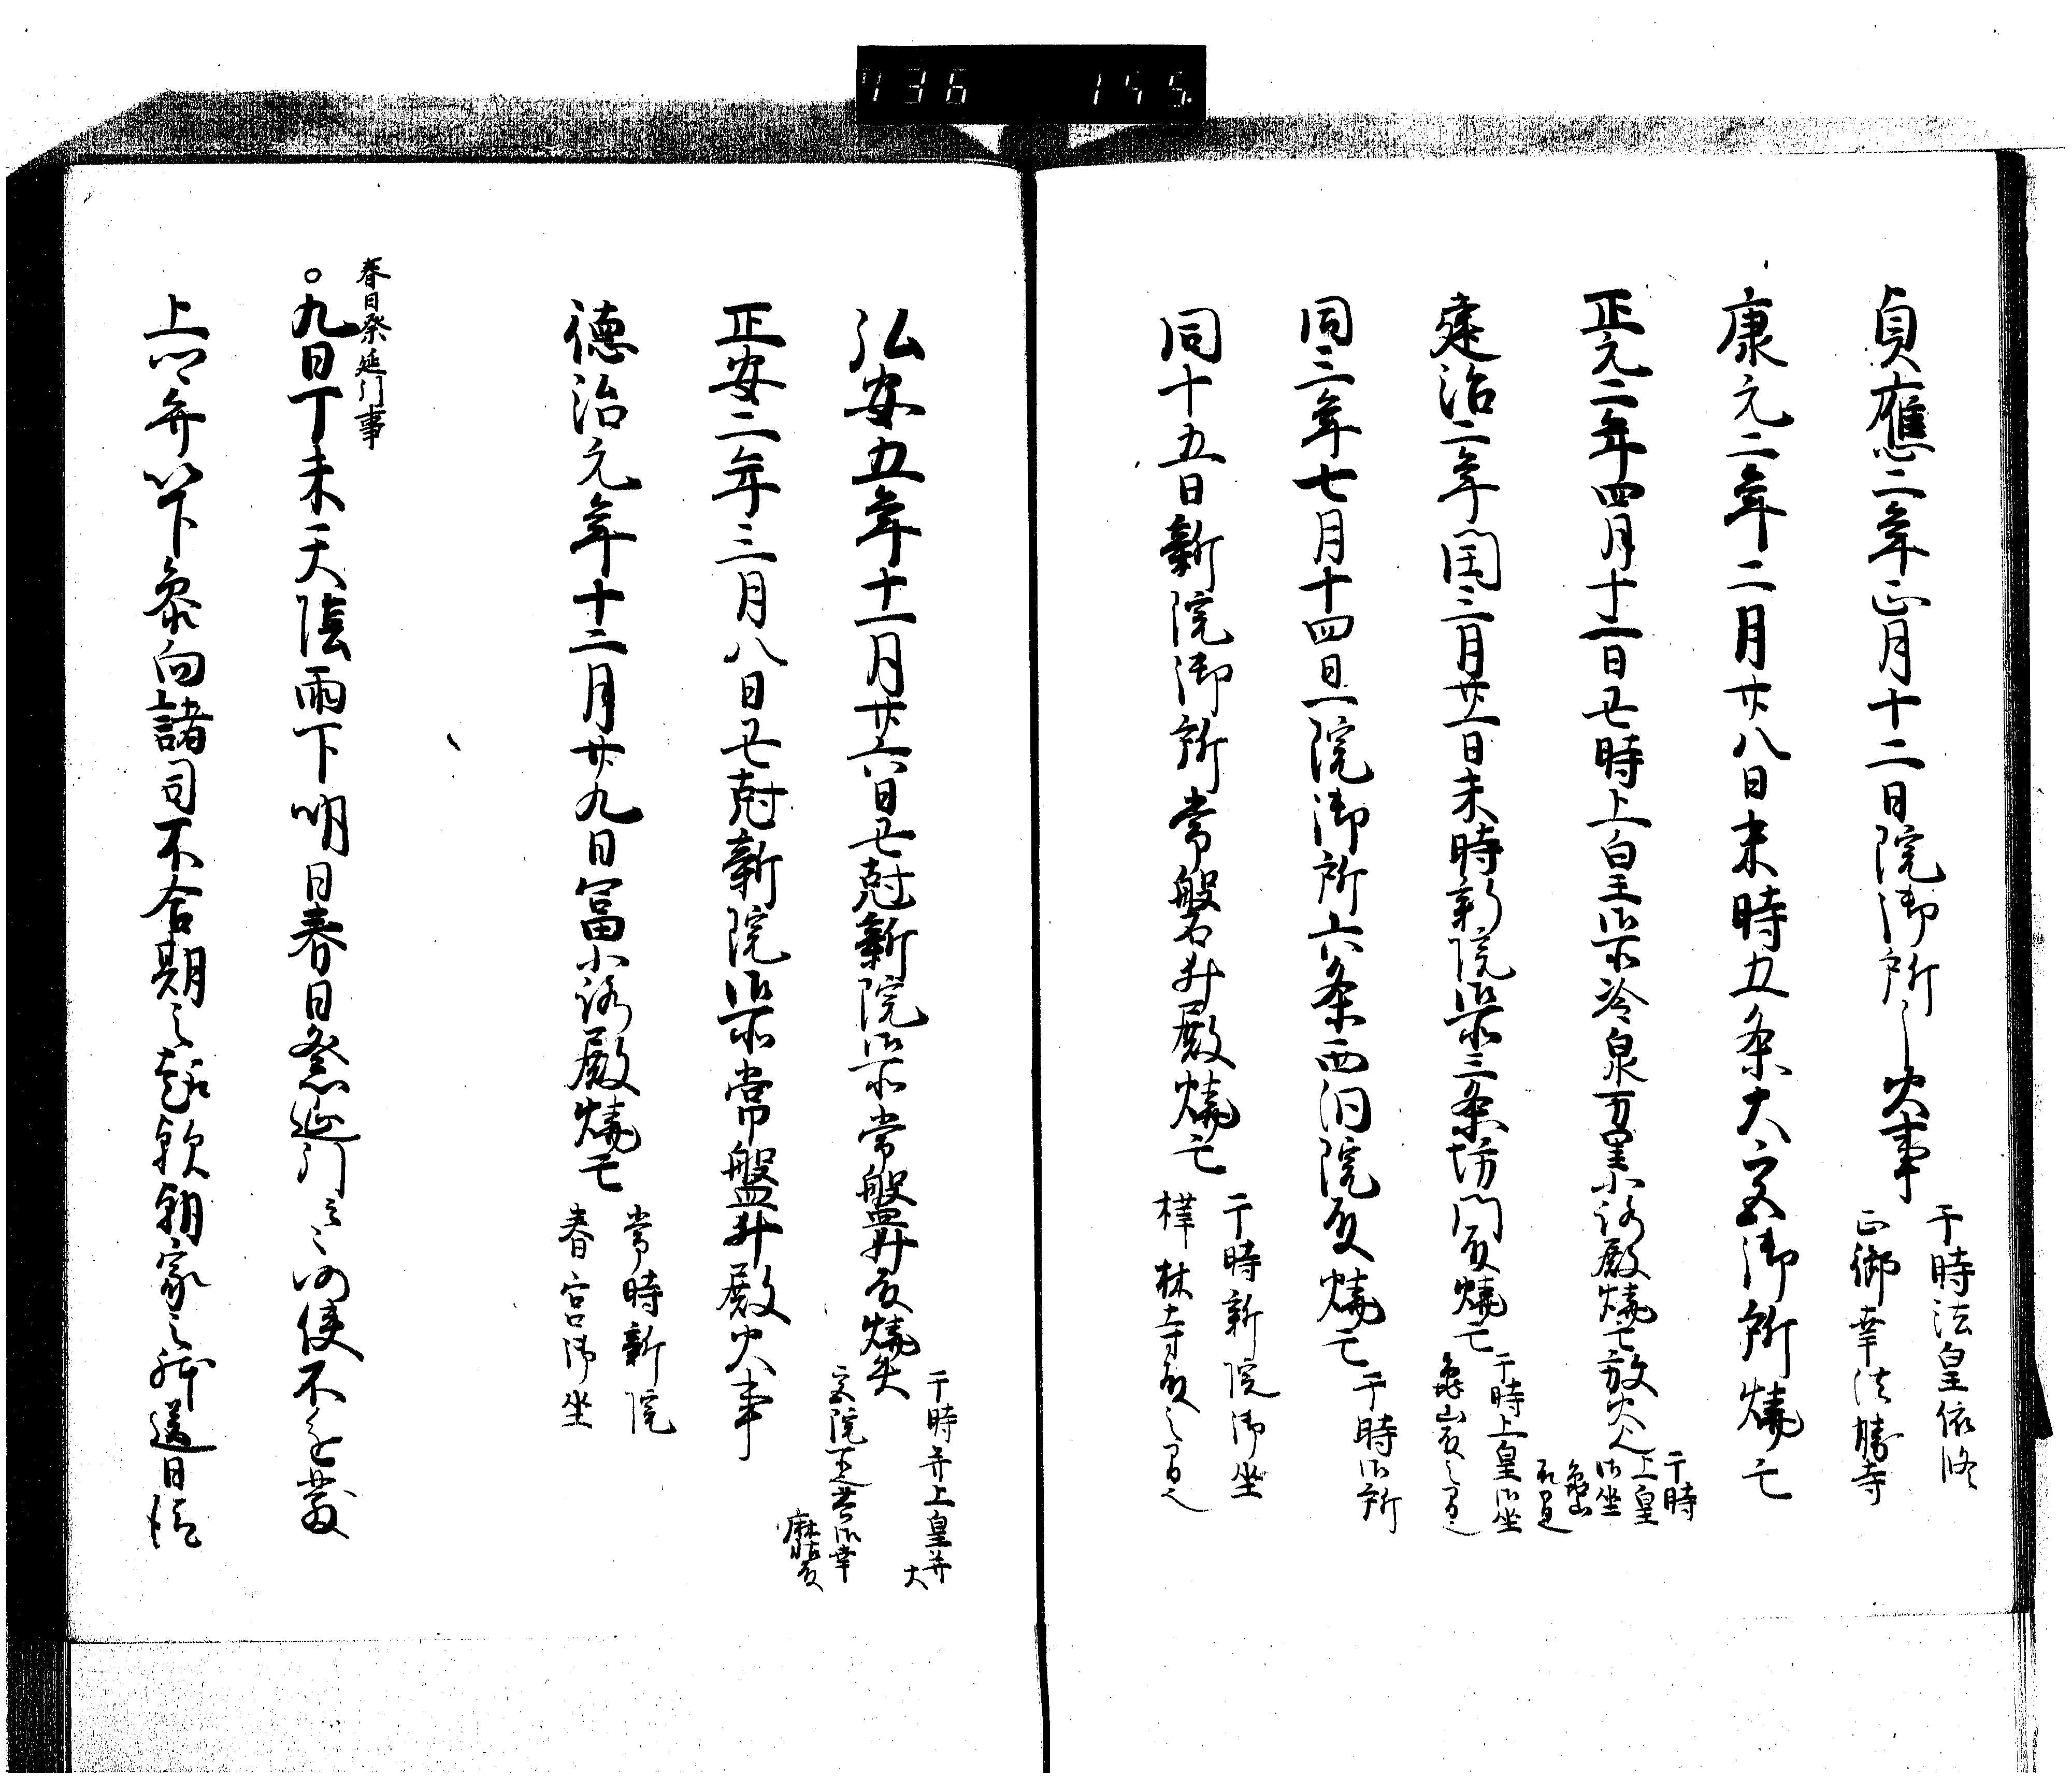 736 155
貞應二年正月十二日院御所之火事
于時法皇依修
正御幸法勝寺
康元二年二月廿八日未時五条大宮御所燒亡
正元二年四月十二日丑時上皇御所冷泉万里小路殿燒亡放火
于時
上皇
御坐
亀山
建治二年閏三月廿一日未時新院御所三条坊門殿燒亡
于時上皇御坐
亀山殿之間也
同三年七月十四日一院御所六条西洞院殿燒亡
于時御所
同十五日新院御所常磐井殿燒亡
于時新院御坐
禅林寺殿之間也
弘安五年十一月廿六日丑尅新院御所常盤井殿燒失
于時并上皇并大
宮院
御幸
殿
正安二年三月八日丑尅新院御所常盤井殿火事
德治元年十二月廿九日冨小路殿燒亡
常時新院
春宮御坐
春日祭延門事
○九日丁未天陰雨下明日春日祭延門云々近使不進發
上卿弁以下参向諸司不合期之起歟朝家之陵遅日